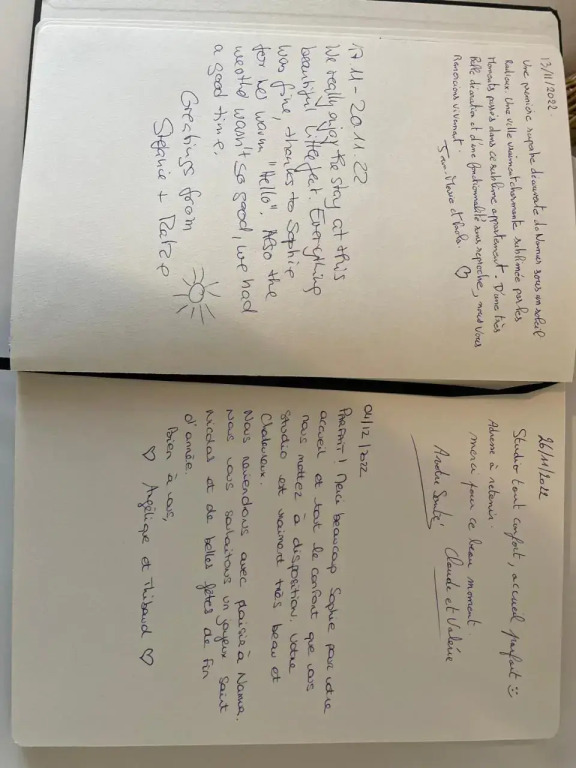 13/11/2022.
Une première superbe découverte de Namur sous un soleil
Radieux. Une ville vraiment charmante sublimée par les
moments passés dans ce sublime appartement. D'une très
Belle décoration et d'une fonctionnalité sans reproche, nous vous
Remercions vivement.
♡
17.11 - 20.11.22
We really enjoy the stay at this
beautiful little flat. Everything
was fine, thanks to Sophie
for her warm "Hello". Also the
weather wasn't so good, we had
a good time.
Greatings from
Stefanie +
26/11/2022
Studio tout confort, accueil parfait
Adresse à retenir.
merci pour ce beau moment.
Claude et Valérie
04/12/2022
Parfait! Merci beaucoup Sophie pour votre
accueil et tout le confort que vous
nous mettez à disposition. Votre
studio est vraiment très beau et
chaleureux.
Nous reviendrons avec plaisir à Namur.
Nous vous souhaitons un joyeux Saint
Nicolas et de belles fêtes de fin
d'année.
Bien à vous,
♡ Angélique et Thibaud ♡